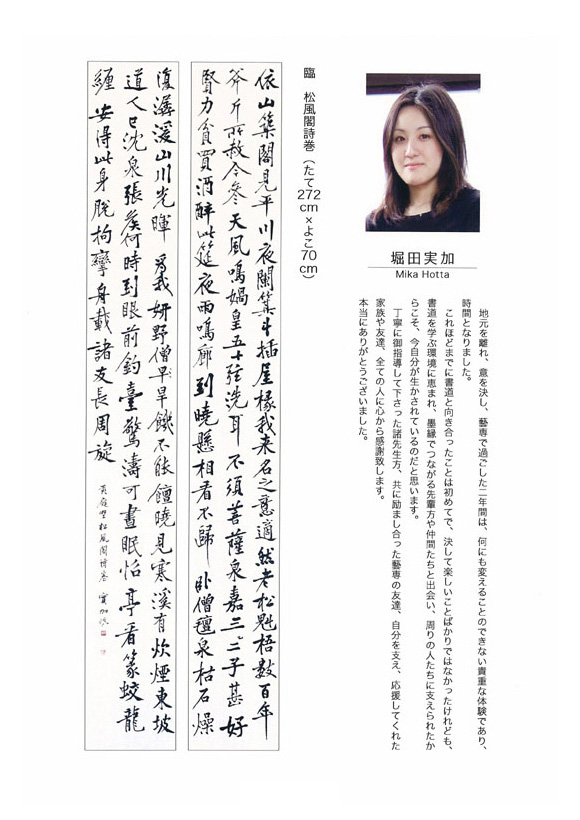 堀田実加
Mika Hotta
地元を離れ、意を決し、藝専で過ごした二年間は、何にも変えることのできない貴重な体験であり、
時間となりました。
これほどまでに書道と向き合ったことは初めてで、決して楽しいことばかりではなかったけれども、
書道を学ぶ環境に恵まれ、墨縁でつながる先輩方や仲間たちと出会い、周りの人たちに支えられたか
らこそ、今自分が生かされているのだと思います。
丁寧に御指導して下さった諸先生方、共に励まし合った藝専の友達、自分を支え、応援してくれた
家族や友達、全ての人に心から感謝致します。
本当にありがとうございました。
臨　松風閣詩巻（たて272cm×よこ70cm）
依山築閣見平川夜闌箕斗插屋椽我来名之意適然老松魁梧數百年
斧斤所赦今參天風鳴媧皇五十弦洗耳不須菩薩泉嘉二三子甚好
賢力貧買酒醉此筵夜雨鳴廊到曉懸相看不歸卧僧氈泉枯石燥
復潺湲山川光暉為我妍野僧早旱饑不能饘曉見寒溪有炊煙東坡
道人已沈泉張侯何時到眼前釣臺驚濤可晝眠怡亭看篆蛟龍
纏安得此身脫拘攣舟載諸友長周旋
黄庭堅松風閣詩巻 實加臨